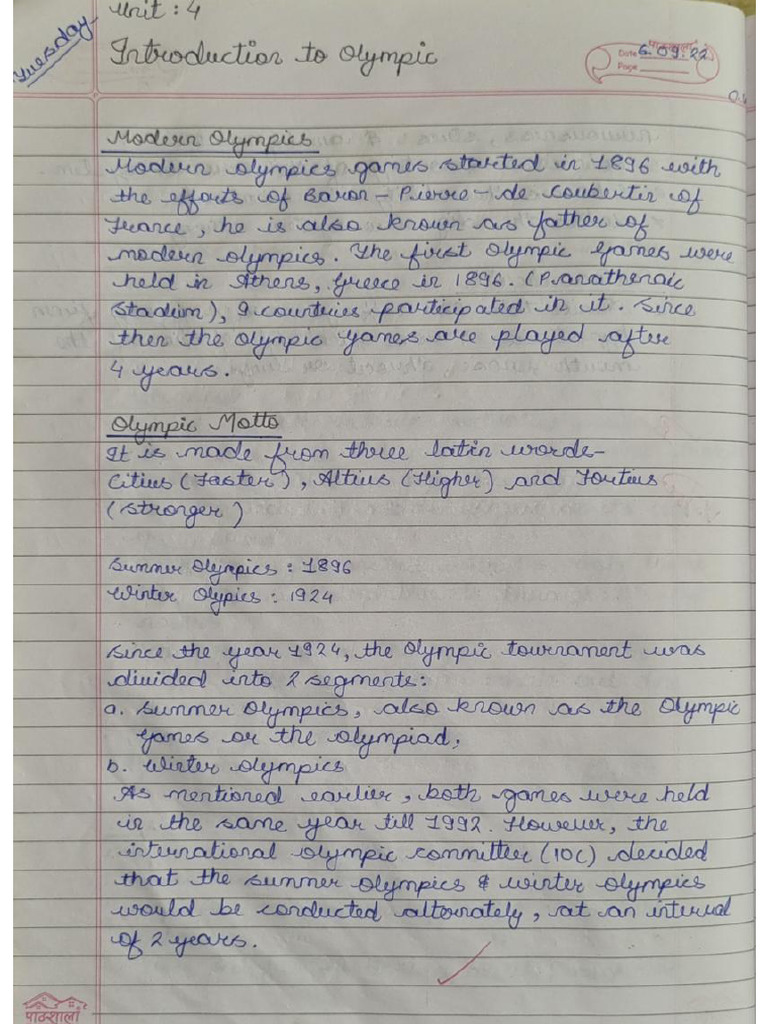 Unit : 4
Tuesday
Introduction to Olympic
पाठशाला
Date 6.09.22
Page
Modern Olympics
Modern olympics games started in 1896 with
the efforts of Baron - Pierre - de Coubertin of
France, he is also known as father of
modern olympics. The first Olympic Games were
held in Athens, Greece in 1896. (Panathenaic
Stadium), 9 countries participated in it. Since
then the Olympic games are played after
4 years.
Olympic Motto
It is made from three latin words-
Citius (Faster), Altius (Higher) and Fortius
(stronger)
Summer Olympics : 1896
Winter Olypics : 1924
Since the year 1924, the Olympic tournament was
divided into 2 segments:
a. Summer Olympics, also known as the Olympic
games or the olympiad;
b. Winter olympics
As mentioned earlier, both games were held
in the same year till 1992. However, the
international olympic committee (IOC) decided
that the summer olympics & winter olympics
would be conducted alternately, at an interval
of 2 years.
पाठशाला